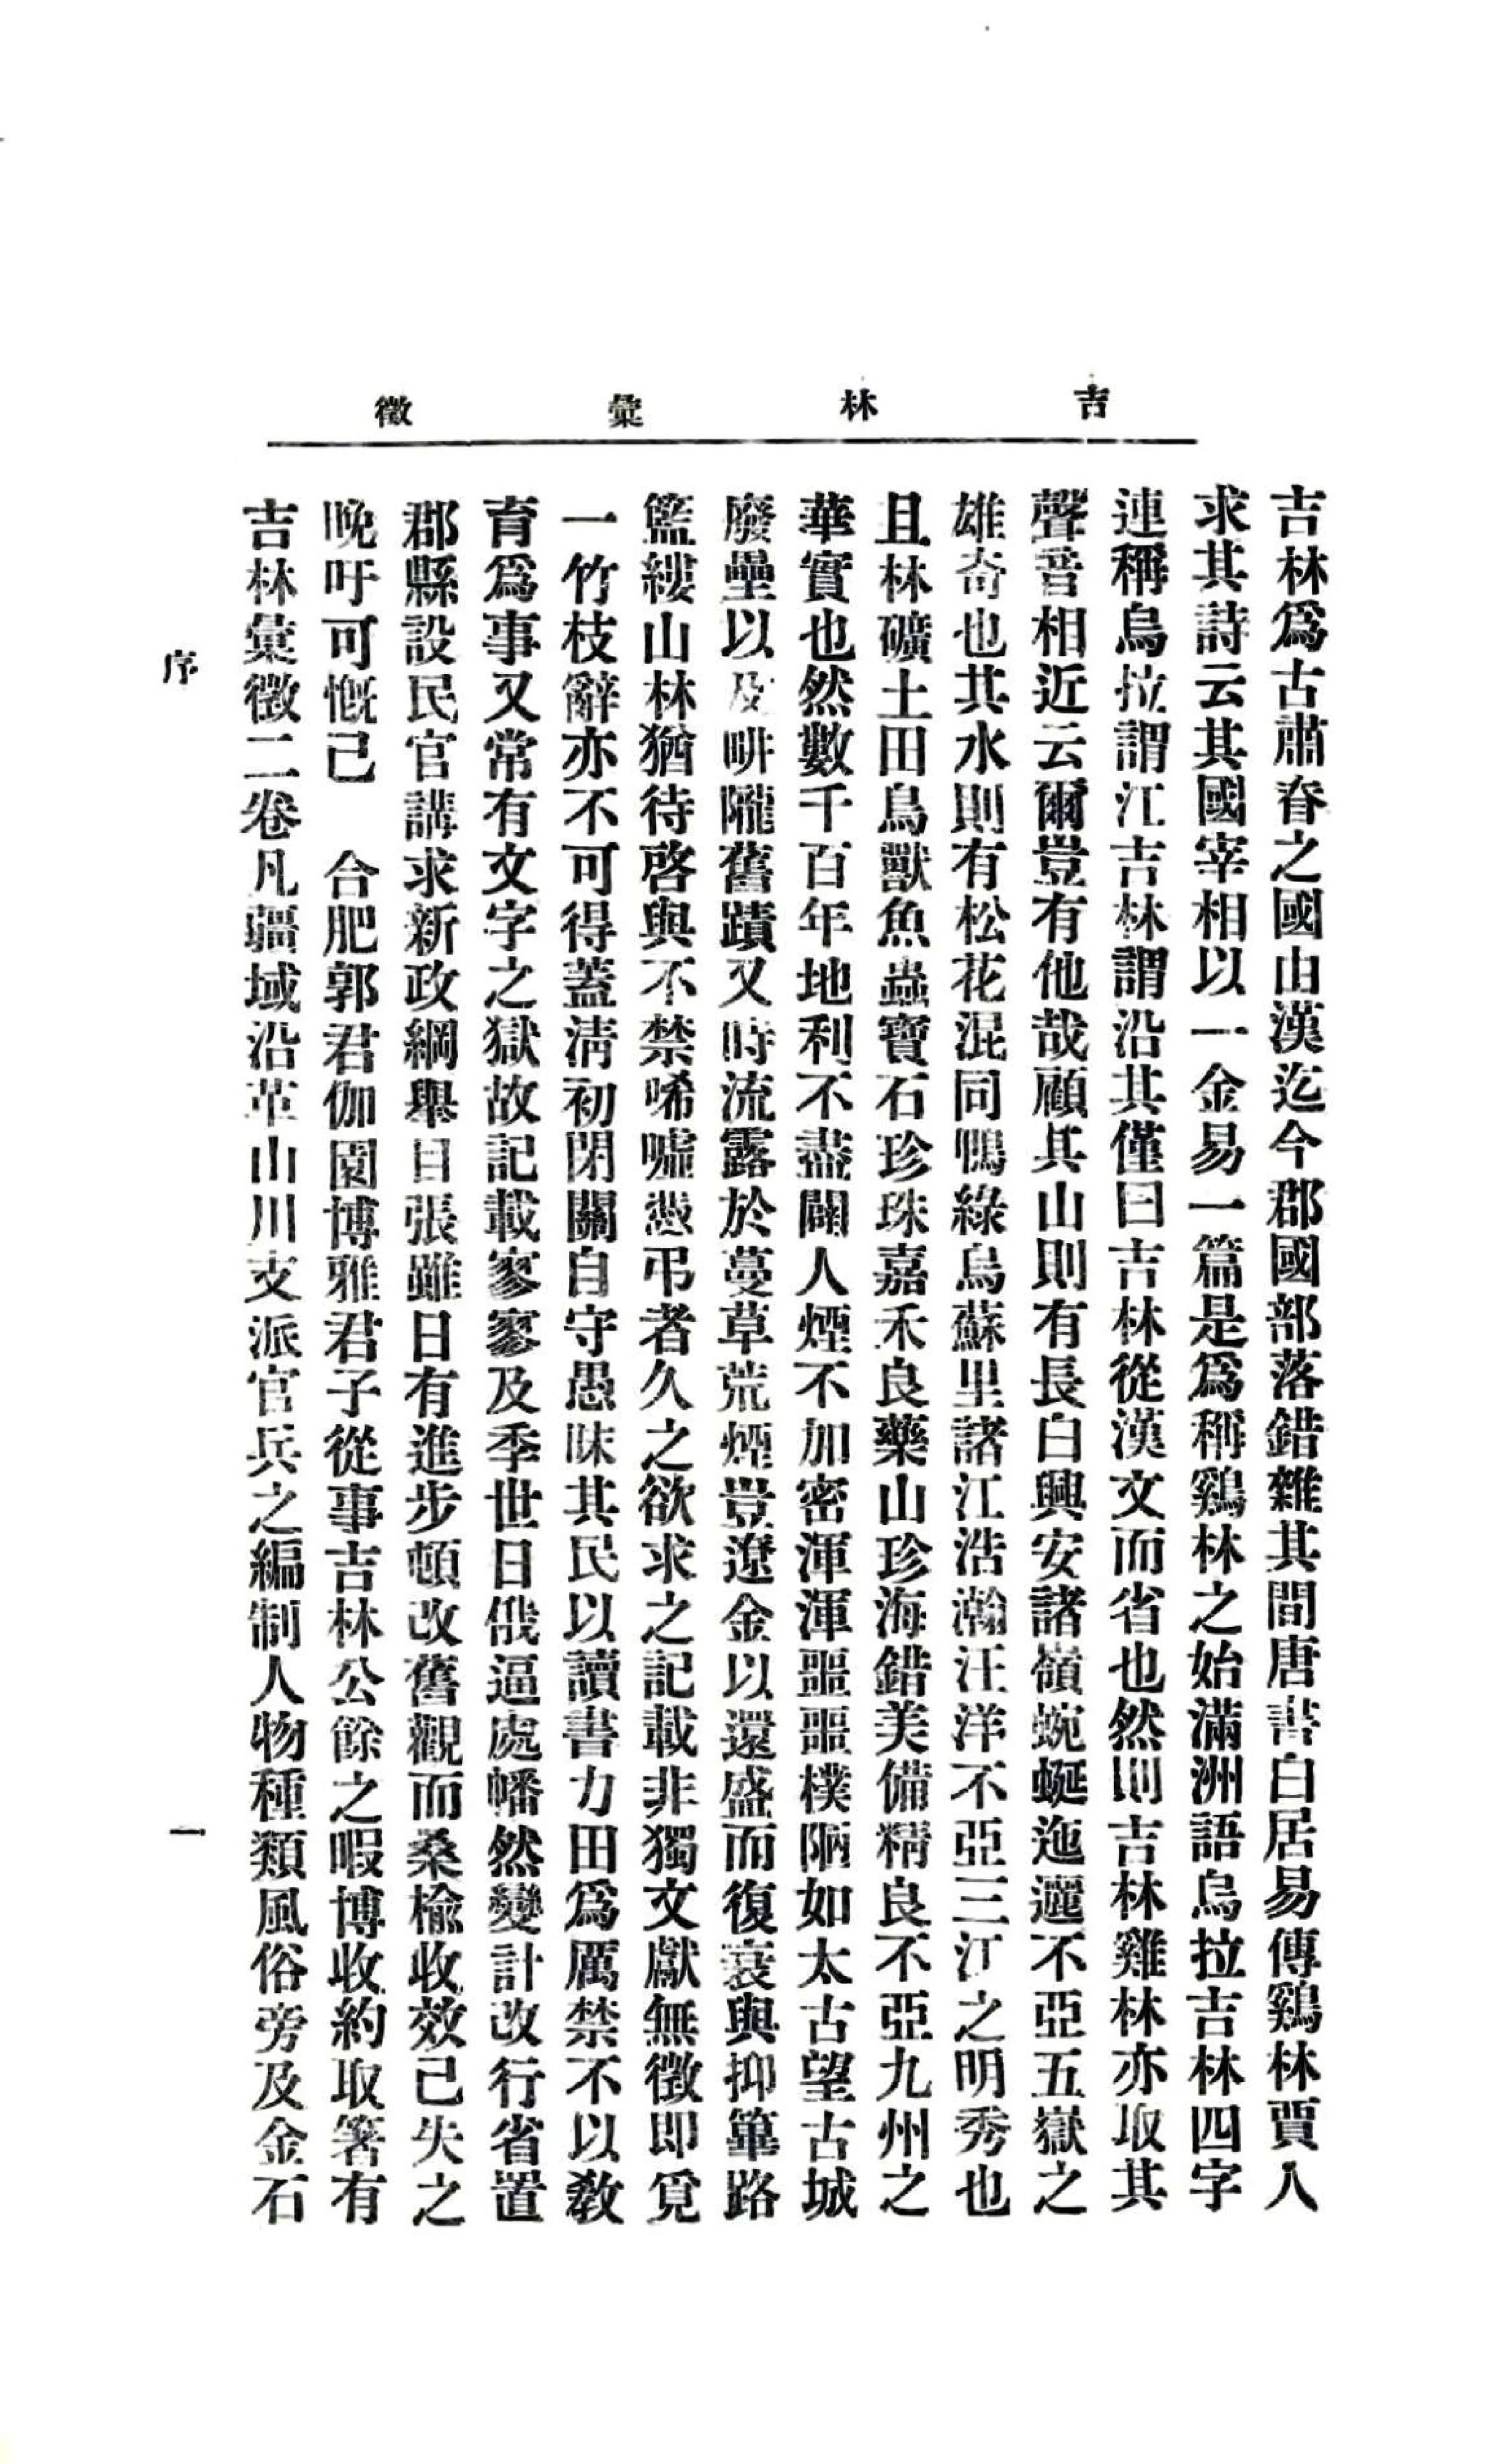 吉林彙徵
吉林爲古肅眘之國由漢迄今郡國部落錯雜其間唐書白居易傳鷄林賈人
求其詩云其國宰相以一金易一篇是爲稱鷄林之始滿洲語烏拉吉林四字
連稱烏拉謂江吉林謂沿其僅曰吉林從漢文而省也然則吉林雞林亦取其
聲音相近云爾豈有他哉顧其山則有長白興安諸嶺蜿蜒迤邐不亞五嶽之
雄奇也其水則有松花混同鴨綠烏蘇里諸江浩瀚汪洋不亞三江之明秀也
且林礦土田鳥獸魚蟲寶石珍珠嘉禾良藥山珍海錯美備精良不亞九州之
華實也然數千百年地利不盡闢人煙不加密渾渾噩噩樸陋如太古望古城
廢壘以及畊隴舊蹟又時流露於蔓草荒煙豈遼金以還盛而復衰與抑篳路
籃縷山林猶待啓與不禁唏噓憑弔者久之欲求之記載非獨文獻無徵即覓
一竹枝辭亦不可得蓋淸初閉關自守愚昧其民以讀書力田爲厲禁不以敎
育爲事又常有文字之獄故記載寥寥及季世日俄逼處幡然變計改行省置
郡縣設民官講求新政綱舉目張雖日有進步頓改舊觀而桑榆收效已失之
晚吁可慨已　合肥郭君伽園博雅君子從事吉林公餘之暇博收約取箸有
吉林彙徵二卷凡疆域沿革山川支派官兵之編制人物種類風俗旁及金石
序
一